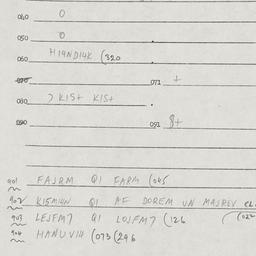 040 0
050 0
060 HIANDIUK (320
070 071 +
080 7 KIS+ KIS+
090 091 8+
901 FAJRM QI FARM (045
902 KISMIUN QI AF DOREM UN MAJREV
903 LEJFM7 QI LOJFM7 (126 (022
904 HANUVIH (073 (296